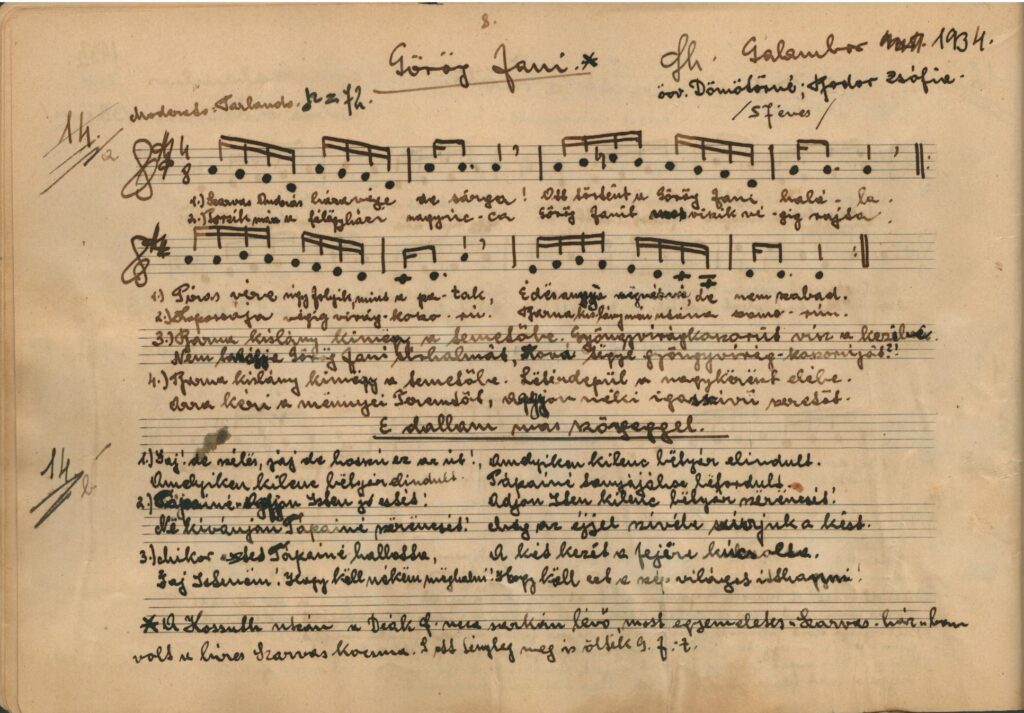 8.
Görög Jani.*
Gh. Galambos 1934.
özv. Dömötörné; Hodor Zsófia.
/57 éves/
Moderato. Parlando. = 72.
14. a
4 8
1.) Szarvas András háza vége de sárga! Ott történt a Görög Jani halá-la.
2.) a félegyházi nagy uc-ca Görög Janit most viszik vé-gig rajta.
1.) Piros vére úgy folyik, mint a pa-tak, Édesanyja végnézné, de nem szabad.
2.) Koporsója végig virág-koszo-rú. Barna kislány már utána szomo-rún.
3.) Barna kislány kimegy a temetőbe. Gyöngyvirágkoszorút visz a kezébe.
Nem Görög Jani sírhalmát, Hová tegye gyöngyvirág-koszorúját?!
4.) Barna kislány kimegy a temetőbe. Letérdepül a nagykereszt elébe.
Arra kéri a mennyei Teremtőt, adjon néki igazszívű szeretőt.
E dallam más szöveggel.
14. b
1.) Jaj! de szélés, jaj de hosszú ez az út!, Amelyiken kilenc bétyár elindult.
Amelyiken kilenc bétyár elindult. Tápainé tanyájába béfordult.
2.) Tápainé Adjon Isten jó estét! Adjon Isten kilenc bétyár szerencsét!
Né kívánjon Tápainé szerencsét! Még az éjjel szívébe szúrjuk a kést.
3.) Mikor eztet Tápainé hallotta, A két kezét a fejére kúcsolta.
Jaj Istenem! Hogy kell nékem méghalni! Hogy kell ezt a szép világot itthagyni!
* A Kossuth utcán a Deák F. ucca sarkán lévő, most egyemeletes "Szarvas-ház"-ban
volt a híres Szarvas kocsma. S ott tényleg meg is ölték G. J.-t.